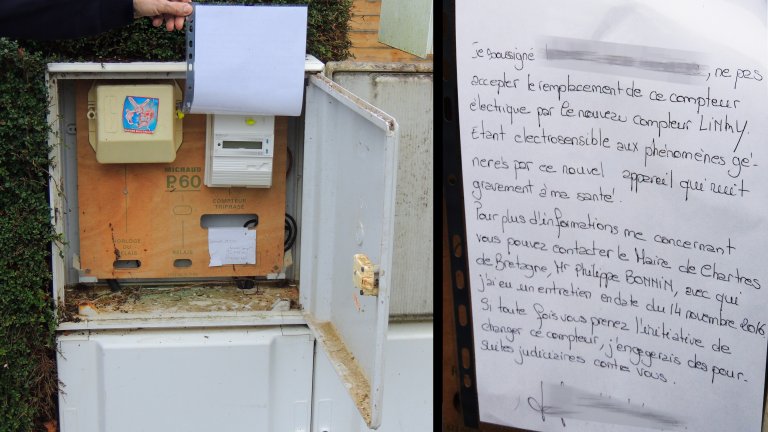 MICHAUD
P.60
COMPTEUR
TRIPHASE
HORLOGE
OU
RELAIS
RELAIS
Je soussigné , ne pas
accepter le remplacement de ce compteur
électrique par le nouveau compteur LINKY.
Etant electrosensible aux phénomènes gé-
nerés par ce nouvel appareil qui nuit
gravement à ma santé.
Pour plus d'informations me concernant
vous pouvez contacter le Maire de Chartres
de Bretagne, Mr Philippe BONNIN, avec qui
j'ai eu un entretien en date du 14 novembre 2016
Si toute fois vous prenez l'initiative de
changer ce compteur, j'engagerais des pour-
suites judiciaires contre vous.